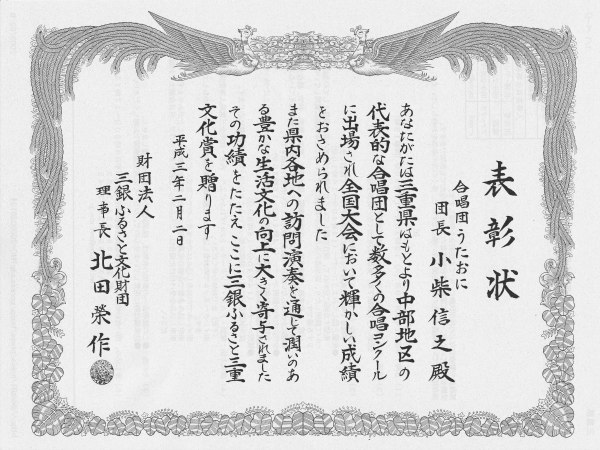 表彰状
合唱団 うたおに
団長 小柴信之殿
あなたがたは三重県はもとより中部地区の
代表的な合唱団として数多くの合唱コンクール
に出場され全国大会において輝かしい成績
をおさめられました
また県内各地への訪問演奏を通して潤いのあ
る豊かな生活文化の向上に大きく寄与されました
その功績をたたえここに三銀ふるさと三重
文化賞を贈ります
平成三年二月二日
財団法人
三銀ふるさと文化財団
理事長 北田榮作